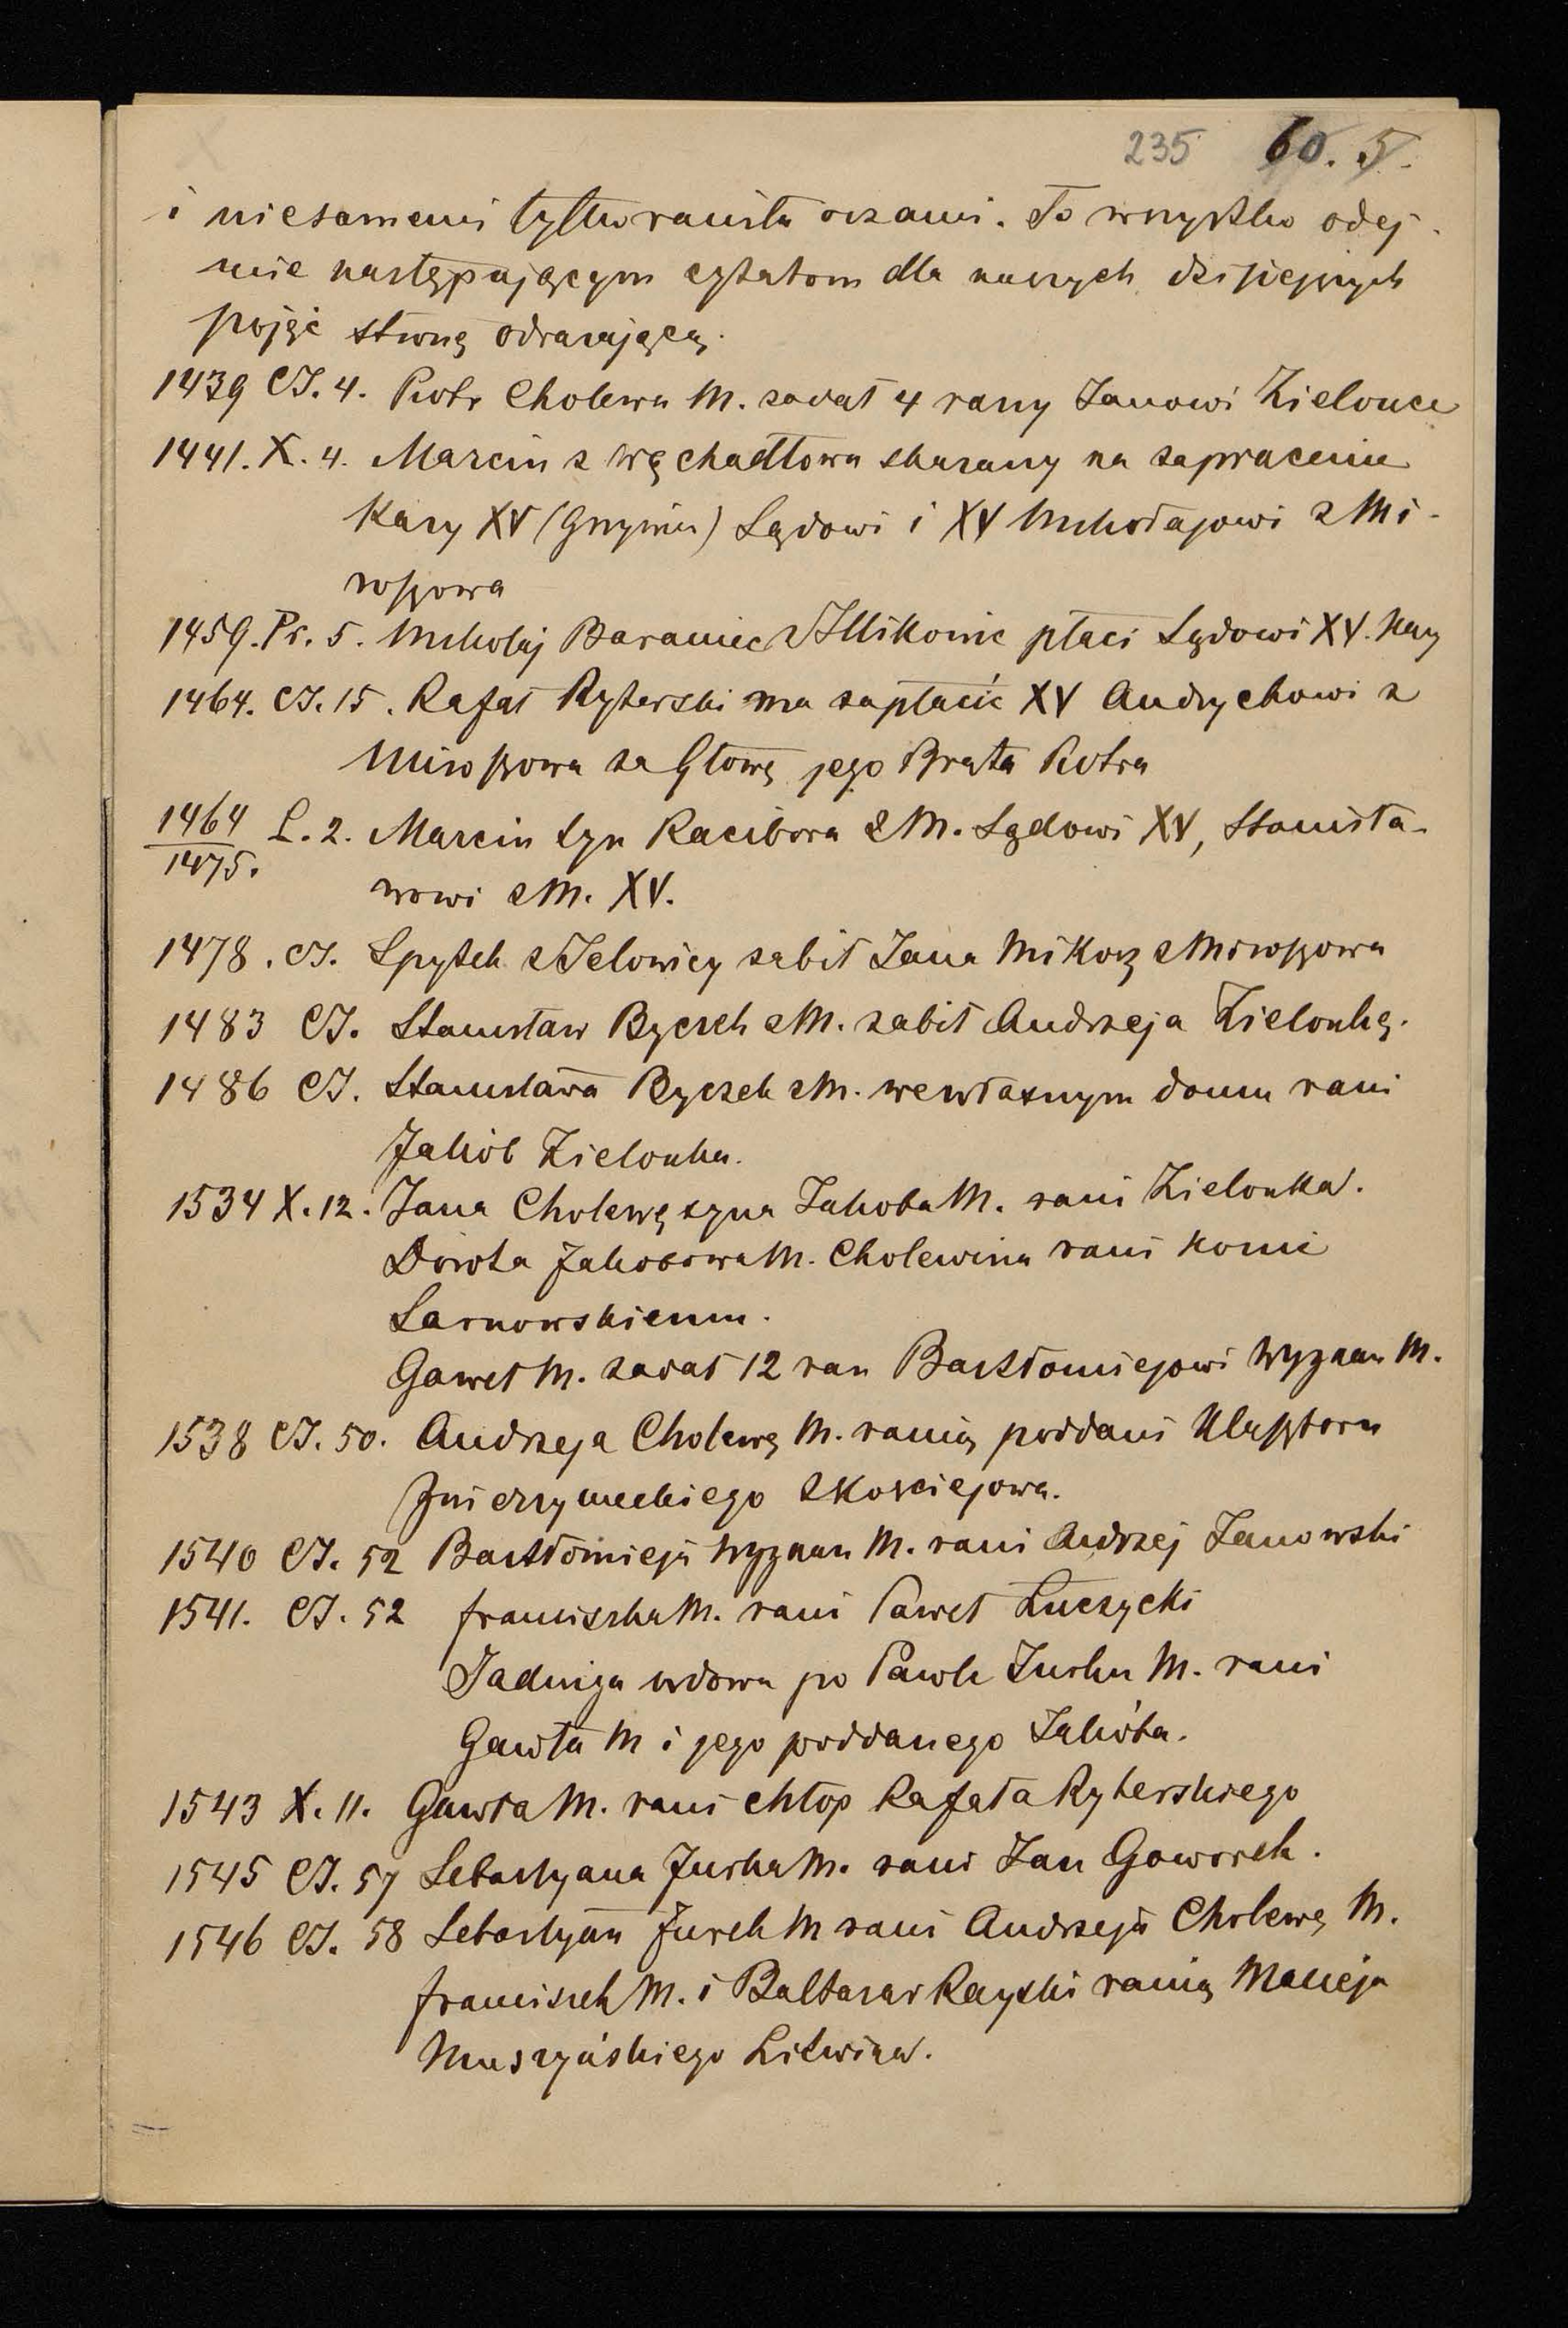 235 60. 5.
i niesamemi tylko ranita oczami. To wszystko odej-
mie następującym cytatom dla naszych dzisiejszych
pojęć stronę odrażającą.
1439 CJ. 4. Piotr Cholewa M. zadał 4 rany Janowi Zielonce
1441. X. 4. Marcin z Węchadłowa skazany na zapłacenie
Kary XV (Grzywien) Sądowi i XV Mikołajowi z Mi-
roszowa
1459. Pr. 5. Mikołaj Baraniec z Mikowic płaci Sądowi XV. Kary
1464. CJ. 15. Rafał Ryterski ma zapłacić XV Andrychowi z
Miroszowa za Głowę jego Brata Piotra
1464 L. 2. Marcin syn Racibora z M. Sądowi XV, Stanisła-
1475.
wowi z M. XV.
1478. CJ. Spytek z Jelowicy zabił Jana Mikosz z Miroszowa
1483 CJ. Stanisław Byczek z M. zabił Andrzeja Zielonkę.
1486 CJ. Stanisława Byczek z M. we własnym domu rani
Jakób Zielonka.
1534 X. 12. Jana Cholewę syna Jakoba M. rani Zielonka.
Dorota Jakobowa M. Cholewina rani konie
Sarnowskiemu.
Gaweł M. zadał 12 ran Bartłomiejowi Wygnan M.
1538 CJ. 50. Andrzeja Cholewę M. ranią poddani Klasztoru
Zwierzynieckiego z Kościejowa.
1540 CJ. 52 Bartłomieja Wygnan M. rani Andrzej Janowski
1541. CJ. 52 franciszka M. rani Paweł Łuczycki
Jadwiga wdowa po Pawle Jurku M. rani
Gawła M i jego poddanego Jakóba.
1543 X. 11. Gawła M. rani chłop Rafała Ryterskiego
1545 CJ. 57 Sebastyana Jurka M. rani Jan Goworek.
1546 CJ. 58 Sebastyan Jurek M rani Andrzeja Cholewę M.
franciszek M. i Baltazar Rayski ranią Macieja
Muszyńskiego Litwina.